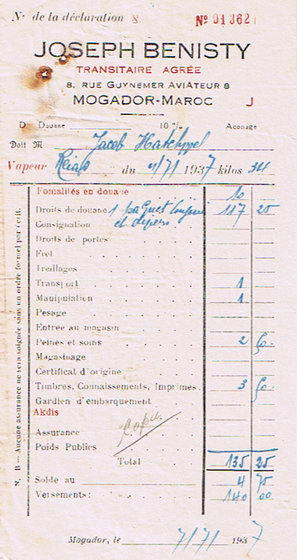 N° de la déclaration 8 N° 013627
JOSEPH BENISTY
TRANSITAIRE AGRÉE
8, RUE GUYNEMER AVIATEUR 8
MOGADOR-MAROC J
D Douane 10 % Aconage
Doit M Jacob
Vapeur du 7/71 1937 kilos 34
Fomalités en douane 10
Droits de douane 1 paquet 117 25
Consignation et divers
Droits de portes
Fret
Treillages
Transport 1
Manipulation 1
Pesage
Entrée au magasin
Peines et soins 2 50
Magasinage
Certificat d'origine
Timbres, Connaissements, Imprimés 3 50
Gardien d'embarquement
Akdis
Assurance
Poids Publics
Total 135 25
Solde au 4 75
Versements: 140 00
N. B — Aucune assurance ne sera soignée sans un ordre formel par écrit.
Mogador, le 7/71 1937